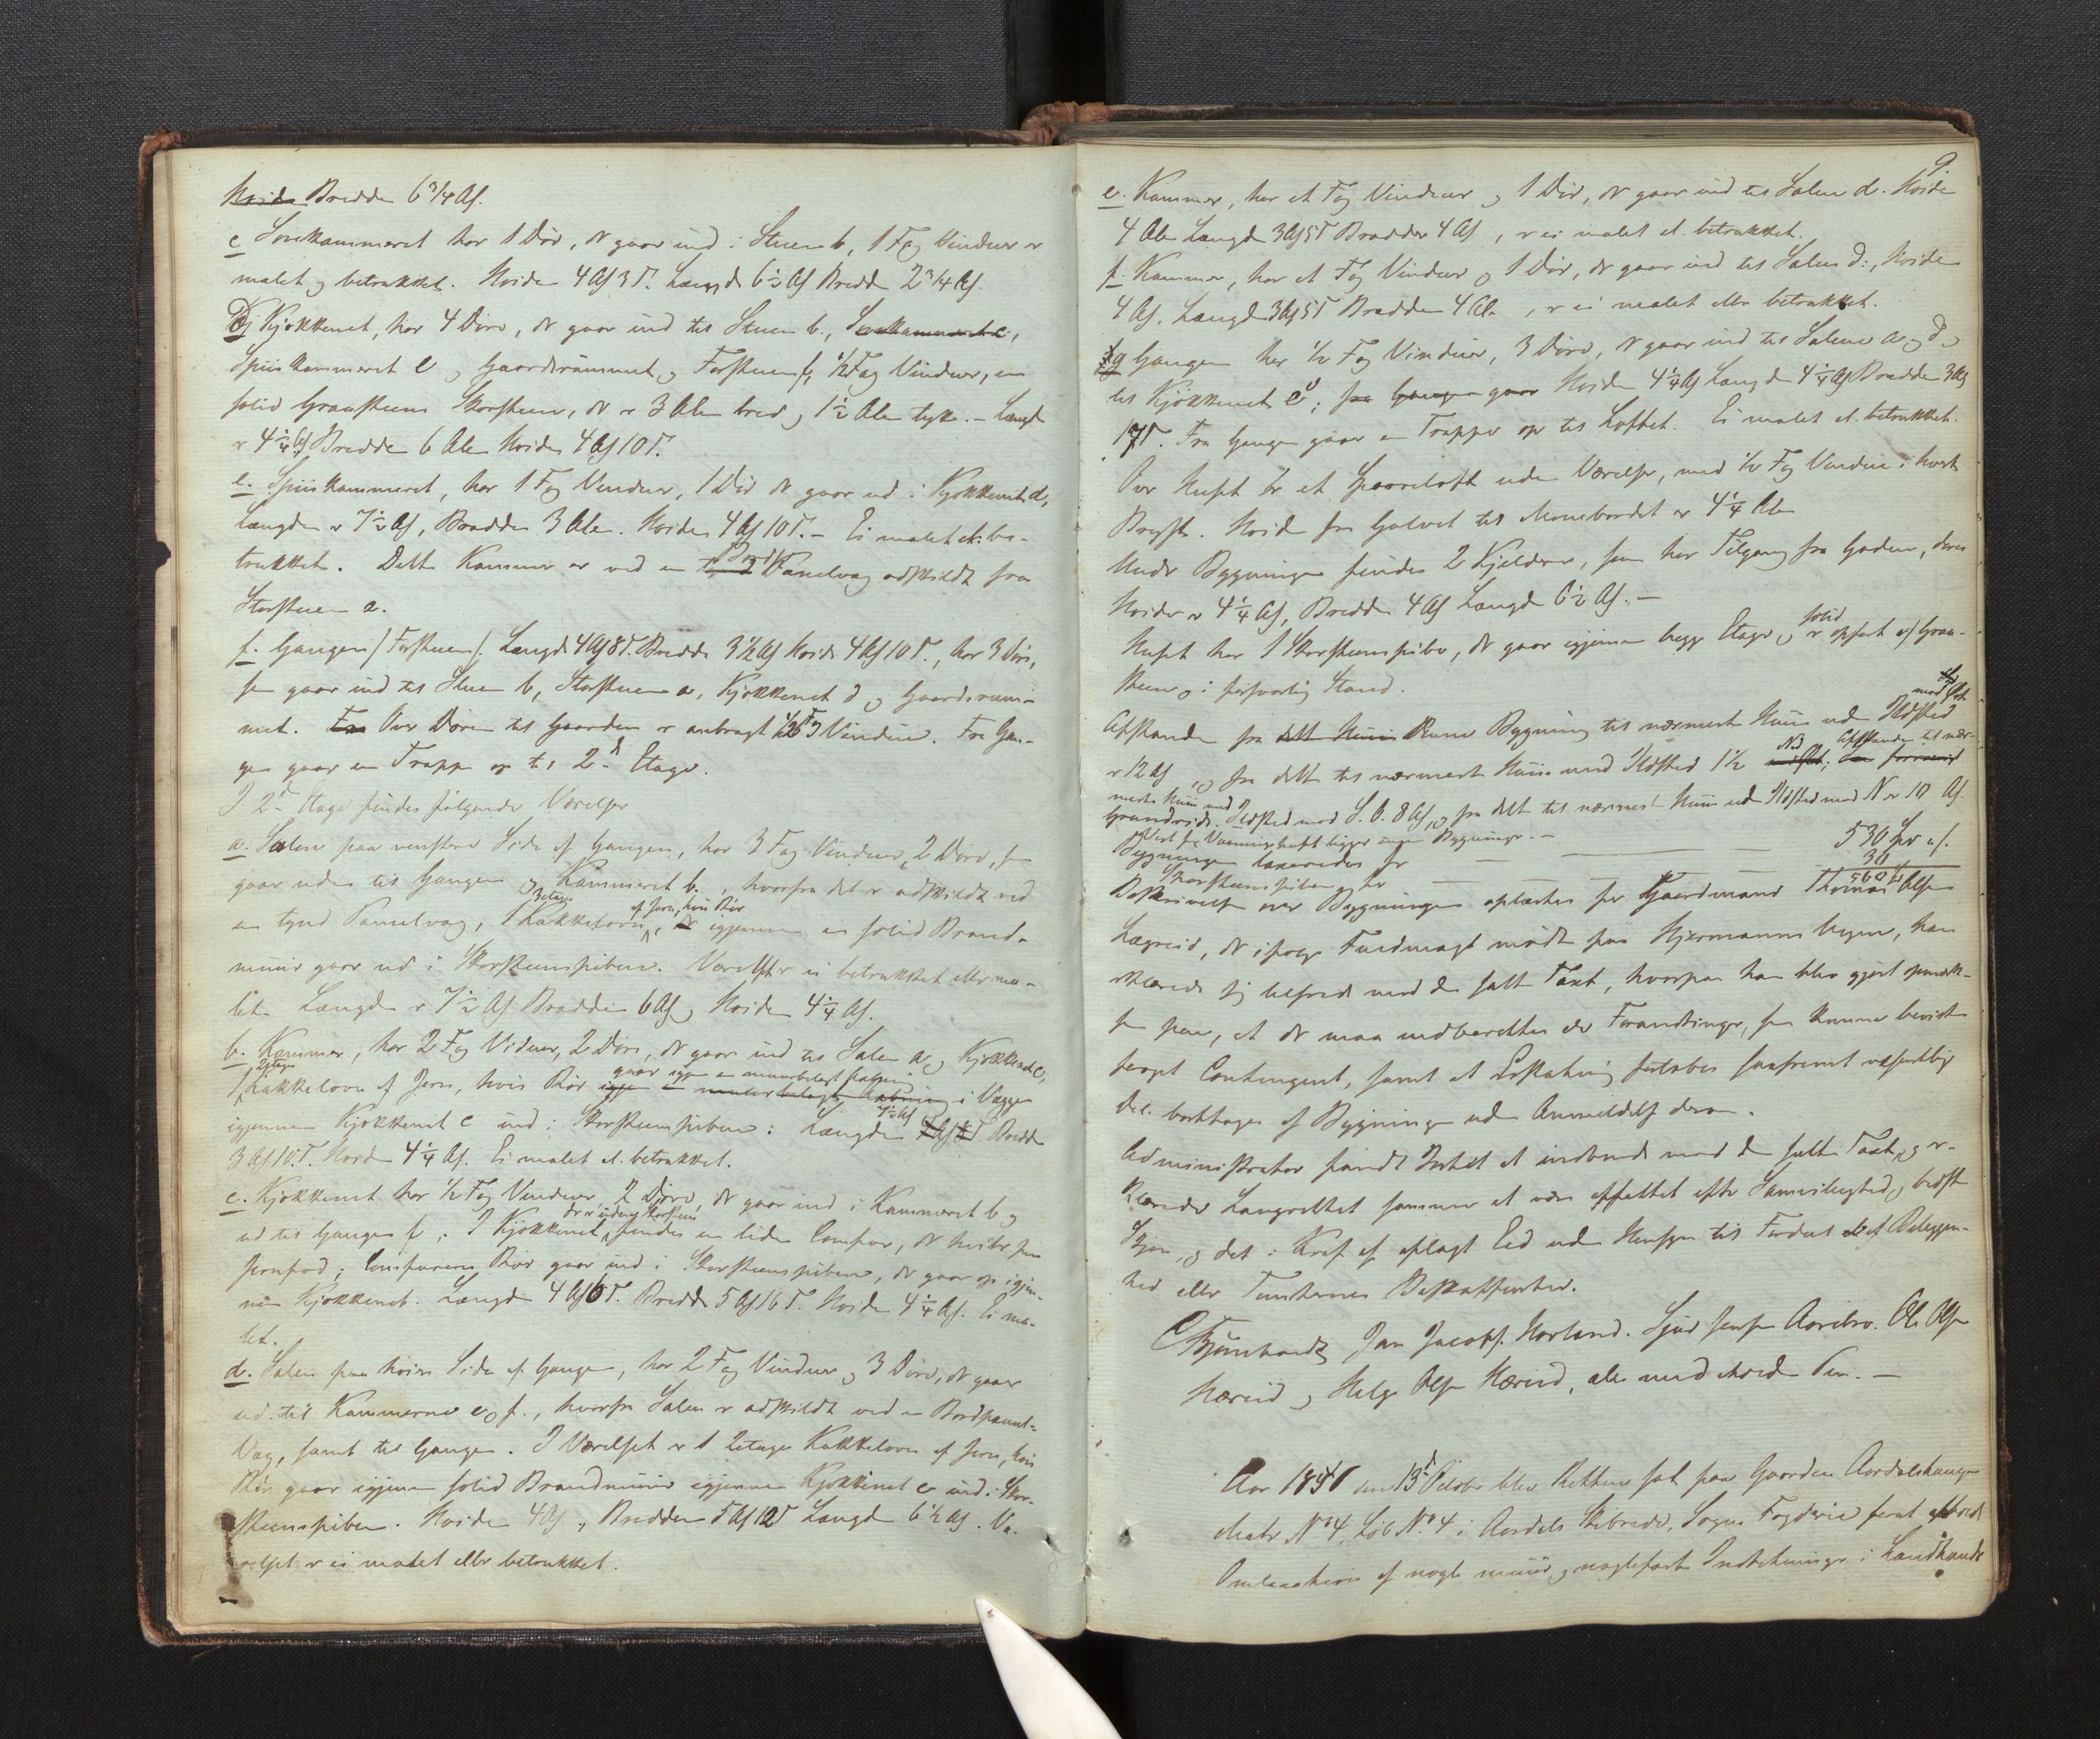 Høide Bredde 6 3/4 Al.
c Sovekammeret har 1 Dør, der gaaer ind i Stuen b, 1 Fag Vinduer er
malet og betrukket. Høide 4 Al 3 T. Længde 6 1/2 Al Bredde 2 3/4 Al.
d Kjøkkenet, har 4 Døre, der gaaer ind til Stuen b., Sovekammeret c,
Spiiskammeret e og Gaardsrummet, og Forstuen f, 1/2 Fag Vinduer, en
solid Graasteens Skorsteen, der er 3 Alen bred og 1 1/2 Alen tyk. – Længde
er 4 1/4 Al Bredde 6 Alen Høide 4 Al 10 T.
e. Spiiskammeret, har 1 Fag Vinduer, 1 Dør der gaaer ud i Kjøkkenet d,
Længden er 7 1/2 Al, Bredden 3 Alen. Høiden 4 Al 10 T. – Ei malet el. be-
trukket. Dette Kammer er ved en Bord Panelvæg adskildt fra
Storstuen a.
f. Gangen / Forstuen /. Længde 4 Al 8 T. Bredde 3 1/2 Al Høide 4 Al 10 T., har 3 Døre,
som gaaer ind til Stuen b, Storstuen a, Kjøkkenet d og Gaardsrum-
met. Over Døren til Gaarden er anbragt 1/2 Fag Vinduer. Fra Gan-
gen gaaer en Trappe op til 2d Etage.
I 2d Etage findes følgende Værelser
a. Salen paa venstre Side af Gangen, har 3 Fag Vinduer, 2 Døre, som
gaaer uden til Gangen og Kammeret b., hvorfra det er adskildt ved
en tynd Panelvæg, 1 2etages Kakkelovn af Jern, hvis Rør igjennem en solid Brand-
muur gaaer ud i Skorsteenspiben. Værelset er ei betrukket eller ma-
let. Længde er 7 1/2 Al Bredde 6 Al og Høide 4 1/4 Al.
b. Kammer, har 2 Fag Vinduer, 2 Døre, der gaaer ind til Salen a og Kjøkkenet c,
1 2etages Kakkelovn af Jern, hvis Rør gaaer i Væggen
igjennem Kjøkkenet c ind i Skorsteenspiben: Længden 7 1/2 Al Bredde
3 Al 10 T. Høide 4 1/4 Al. Ei malet el. betrukket.
c. Kjøkkenet har 1/2 Fag Vinduer, 2 Døre, der gaaer ind i Kammeret b og
ud til Gangen f. I Kjøkkenet, der er uden Skorsteen findes en liden Comfur, der hviler paa
Jernfod; Comfurens Rør gaaer ind i Skorsteenspiben, der gaaer op igjen-
nem Kjøkkenet. Længde 4 Al 6 T. Bredde 5 Al 16 T. Høide 4 1/4 Al. Ei ma-
let.
d. Salen paa høire Side af Gangen, har 2 Fag Vinduer og 3 Døre, der gaaer
ud til Kammerne e og f., hvorfra Salen er adskildt ved en Bordpanel-
Væg, samt til Gangen. I Værelset er 1 2etages Kakkelovn af Jern, hvis
Rør gaaer igjennem solid Brandmuur igjennem Kjøkkenet c ind i Skor-
steenspiben. Høiden 4 Al, Bredden 5 Al 12 T Længde 6 1/2 Al. Væ-
relset er ei malet eller betrukket.
9.
e. Kammer, har et Fag Vinduer og 1 Dør, der gaaer ind til Salen d. Høide
4 Alen Længde 3 Al 5 T Bredden 4 Al, er ei malet el. betrukket.
f. Kammer, har et Fag Vinduer og 1 Dør, der gaaer ind til Salen d., Høide
4 Al. Længde 3 Al 5 T Bredden 4 Al, er ei malet eller betrukket.
g Gangen har 1/2 Fag Vinduer, 3 Døre, der gaaer ind til Salene a og d og
til Kjøkkenet c; fra Gangen gaaer Høide 4 1/4 Al Længde 4 1/4 Al Bredde 3 Al
17 T. Fra Gangen gaaer en Trappe op til Loftet. Ei malet el. betrukket.
Over Huset er et Sperreloft uden Værelser, med 1/2 Fag Vinduer i hvert
Bryst. Høide fra Gulvet til Mønebordet er 4 1/4 Alen
Under Bygningen findes 2 Kjeldere, som har Tilgang fra Gaden, deres
Høide er 4 1/4 Al, Bredde 4 Al Længde 6 1/2 Al. –
Huset har 1 Skorsteenspibe, der gaaer igjennem begge Etager og er solid opført af Graa-
steen og i forsvarlig Stand.
Afstanden fra denne Bygning til nærmeste Huus uden Ildsted mod Øst
er 12 Al, og fra dette til nærmeste Huus med Ildsted 1 1/2 Afstanden til nær-
meste Huus med Ildsted mod S. O. 8 Al, og fra dette til nærmeste Huus uden Ildsted mod N er 10 Al.
Vest for Vaaningshuset ligger ingen Bygninger. –
Bygningen taxeredes for – – – 530 Spd
Skorsteenspiben for – – – 30
560
Beskrivelsen over Bygningen oplæstes for Gaardmand Thomas Olsen
Lægreid, der ifølge Fuldmagt mødte paa Hjermanns Vegne, han
erklærede sig tilfreds med den satte Taxt, hvorpaa han blev gjort opmærk-
som paa, at der maa indberettes de Forandringer, som kunne bevirke
forøget Contingent, samt at Erstatning fortabes saafremt væsentlige
Dele borttages af Bygningen uden Anmeldelse derom.
Administrator fandt Intet at indvende mod den satte Taxt, og er-
klærede Laugrettet samme at være affattet efter Samvittighed og bedste
Skjøn, og det i Kraft af aflagt Eed uden Hensyn til Stedets Beliggen-
hed eller Tomternes Beskaffenhed.
Jan Jacobs. Horland. Sjur Jensen Aarebro. Ole Olsen
Hæreid og Helge Olsen Hæreid, alle med iholden Pen. –
Aar 1851 den 13de October blev Retten sat paa Gaarden Aardalstangen
Matr. No 4, Løb No 4 i Aardals Skibrede, Sogns Fogderie samt
Omtaxation af nogle muur og nagelfaste Indretninger i Landhand-